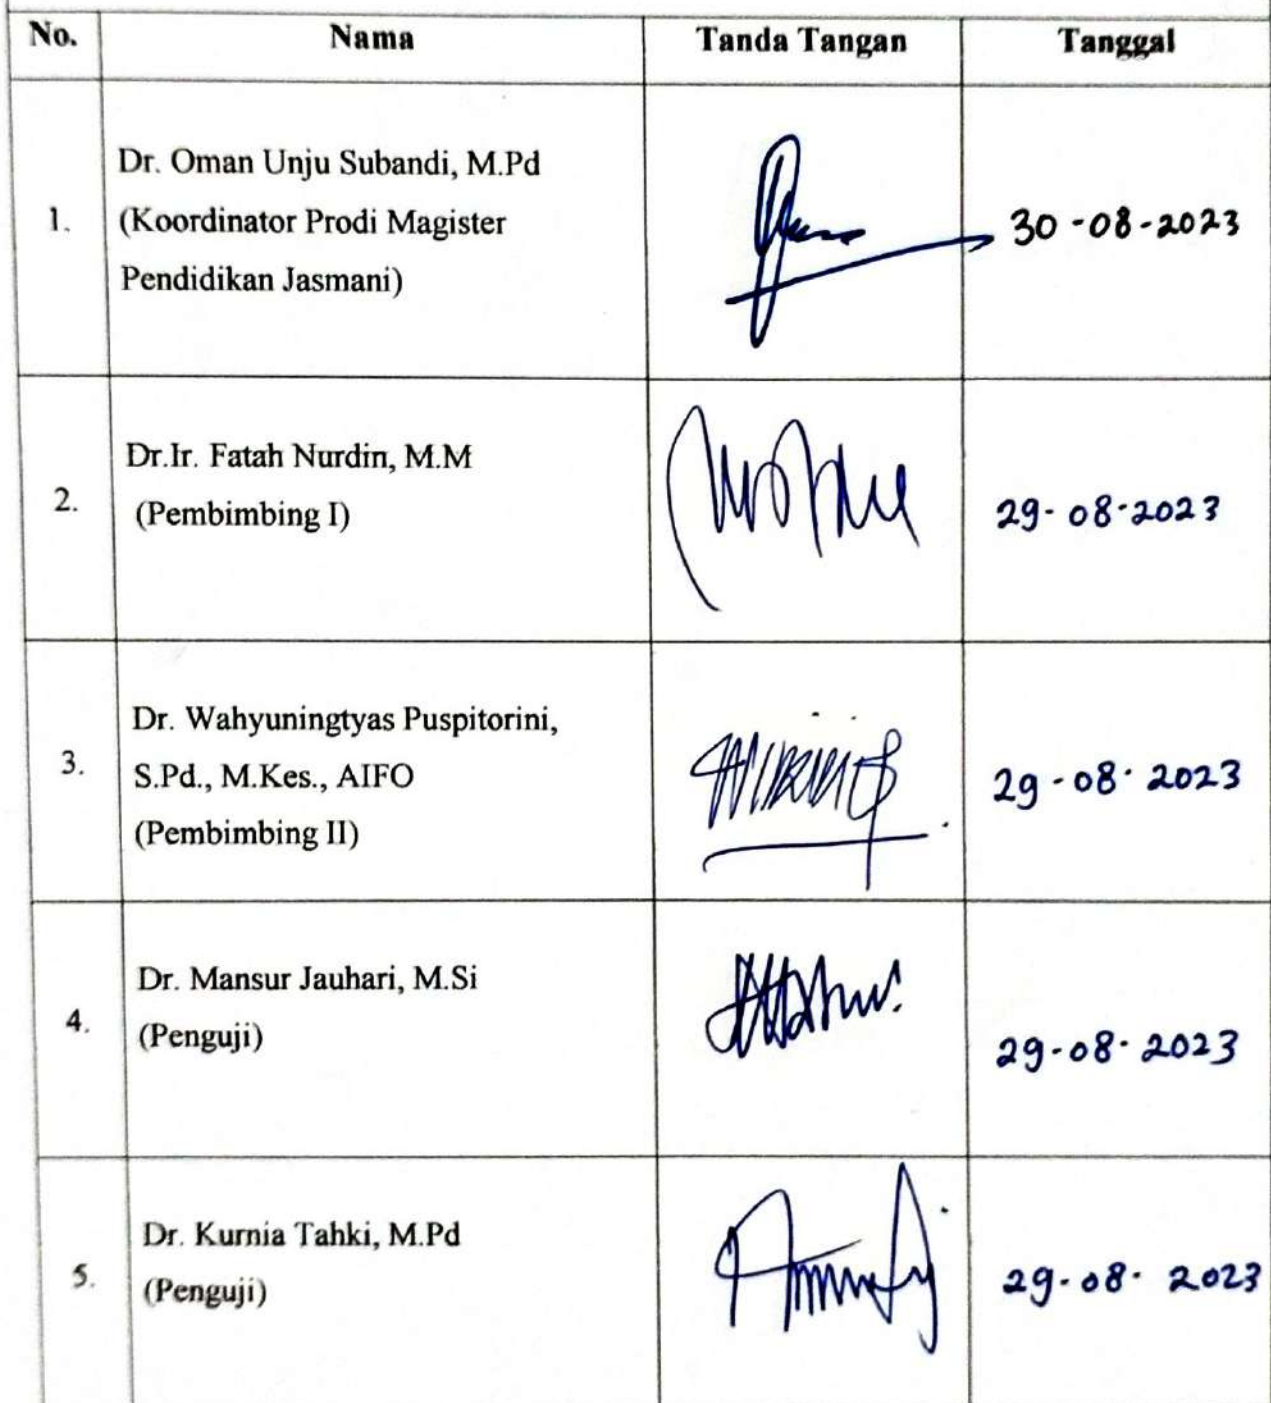 No. Nama Tanda Tangan Tanggal
Dr. Oman Unju Subandi, M.Pd
1. (Koordinator Prodi Magister 30-08-2023
Pendidikan Jasmani)
Dr.Ir. Fatah Nurdin, M.M
2. (Pembimbing I) 29-08-2023
Dr. Wahyuningtyas Puspitorini,
3. S.Pd., M.Kes., AIFO 29-08-2023
(Pembimbing II)
Dr. Mansur Jauhari, M.Si
4. (Penguji) 29-08-2023
Dr. Kurnia Tahki, M.Pd
5. (Penguji) 29-08-2023